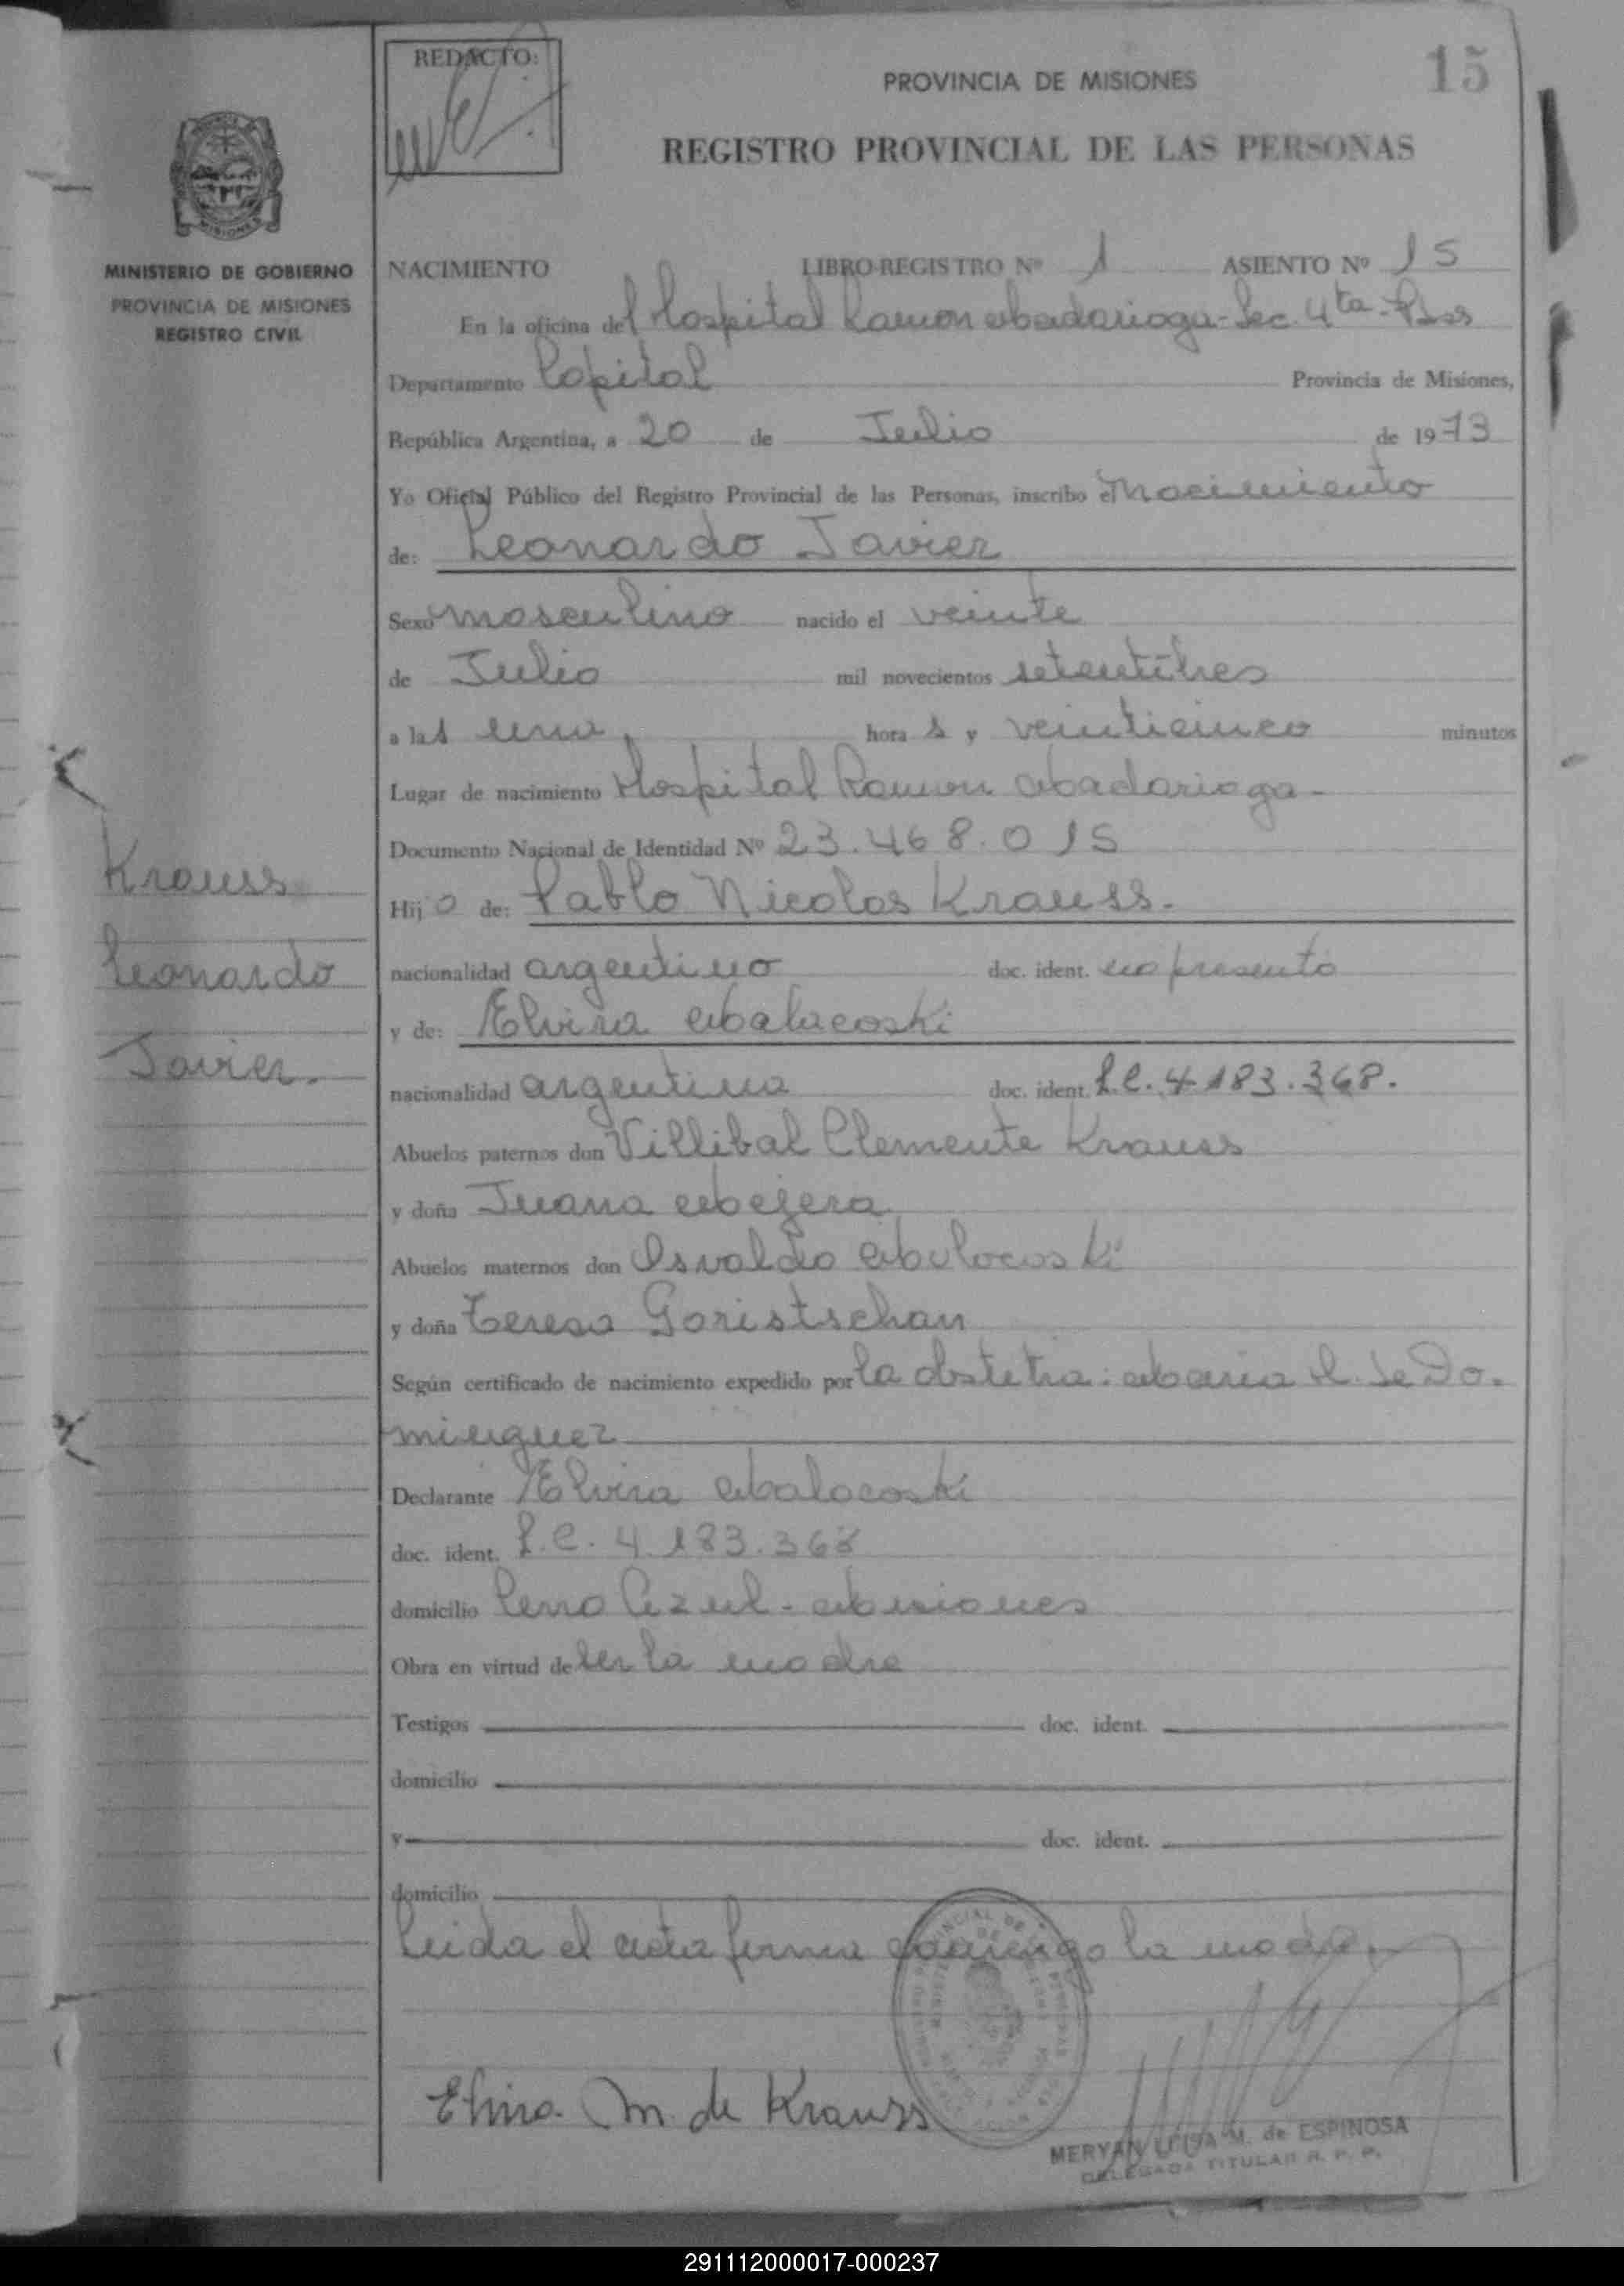 REDACTO:
15
PROVINCIA DE MISIONES
REGISTRO PROVINCIAL DE LAS PERSONAS
MISIONES
MINISTERIO DE GOBIERNO
PROVINCIA DE MISIONES
REGISTRO CIVIL
NACIMIENTO LIBRO-REGISTRO Nº 1 ASIENTO Nº 15
En la oficina del Hospital Ramon Madariaga - Sec. 4ta - Pdas
Departamento Capital Provincia de Misiones,
República Argentina, a 20 de Julio de 1973
Yo Oficial Público del Registro Provincial de las Personas, inscribo el Nacimiento
de: Leonardo Javier
Sexo masculino nacido el veinte
de Julio mil novecientos setentitres
a las una hora s y veinticinco minutos
Lugar de nacimiento Hospital Ramon Madariaga -
Documento Nacional de Identidad Nº 23.468.015
Krauss
Leonardo
Javier.
Hijo de: Pablo Nicolas Krauss.
nacionalidad argentino doc. ident. no presento
y de: Elvira Malacoski
nacionalidad argentina doc. ident. L.C. 4.183.368.
Abuelos paternos don Villibal Clemente Krauss
y doña Juana
Abuelos maternos don Osvaldo
y doña Teresa Goristschan
Según certificado de nacimiento expedido por la obstetra: Maria de Do-
minguez
Declarante Elvira Malacoski
doc. ident. L.C. 4.183.368
domicilio Cerro Azul - Misiones
Obra en virtud de ser la madre
Testigos doc. ident.
domicilio
y doc. ident.
domicilio
Leida el acta firma conmigo la madre.
Elvira M. de Krauss
MERYAN LUISA M. de ESPINOSA
DELEGADA TITULAR R. P. P.
291112000017-000237